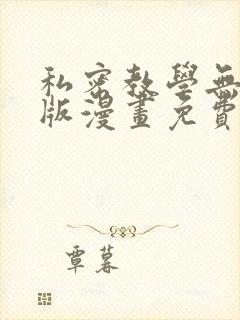 私密教學無
版漫畫免費
覃暮